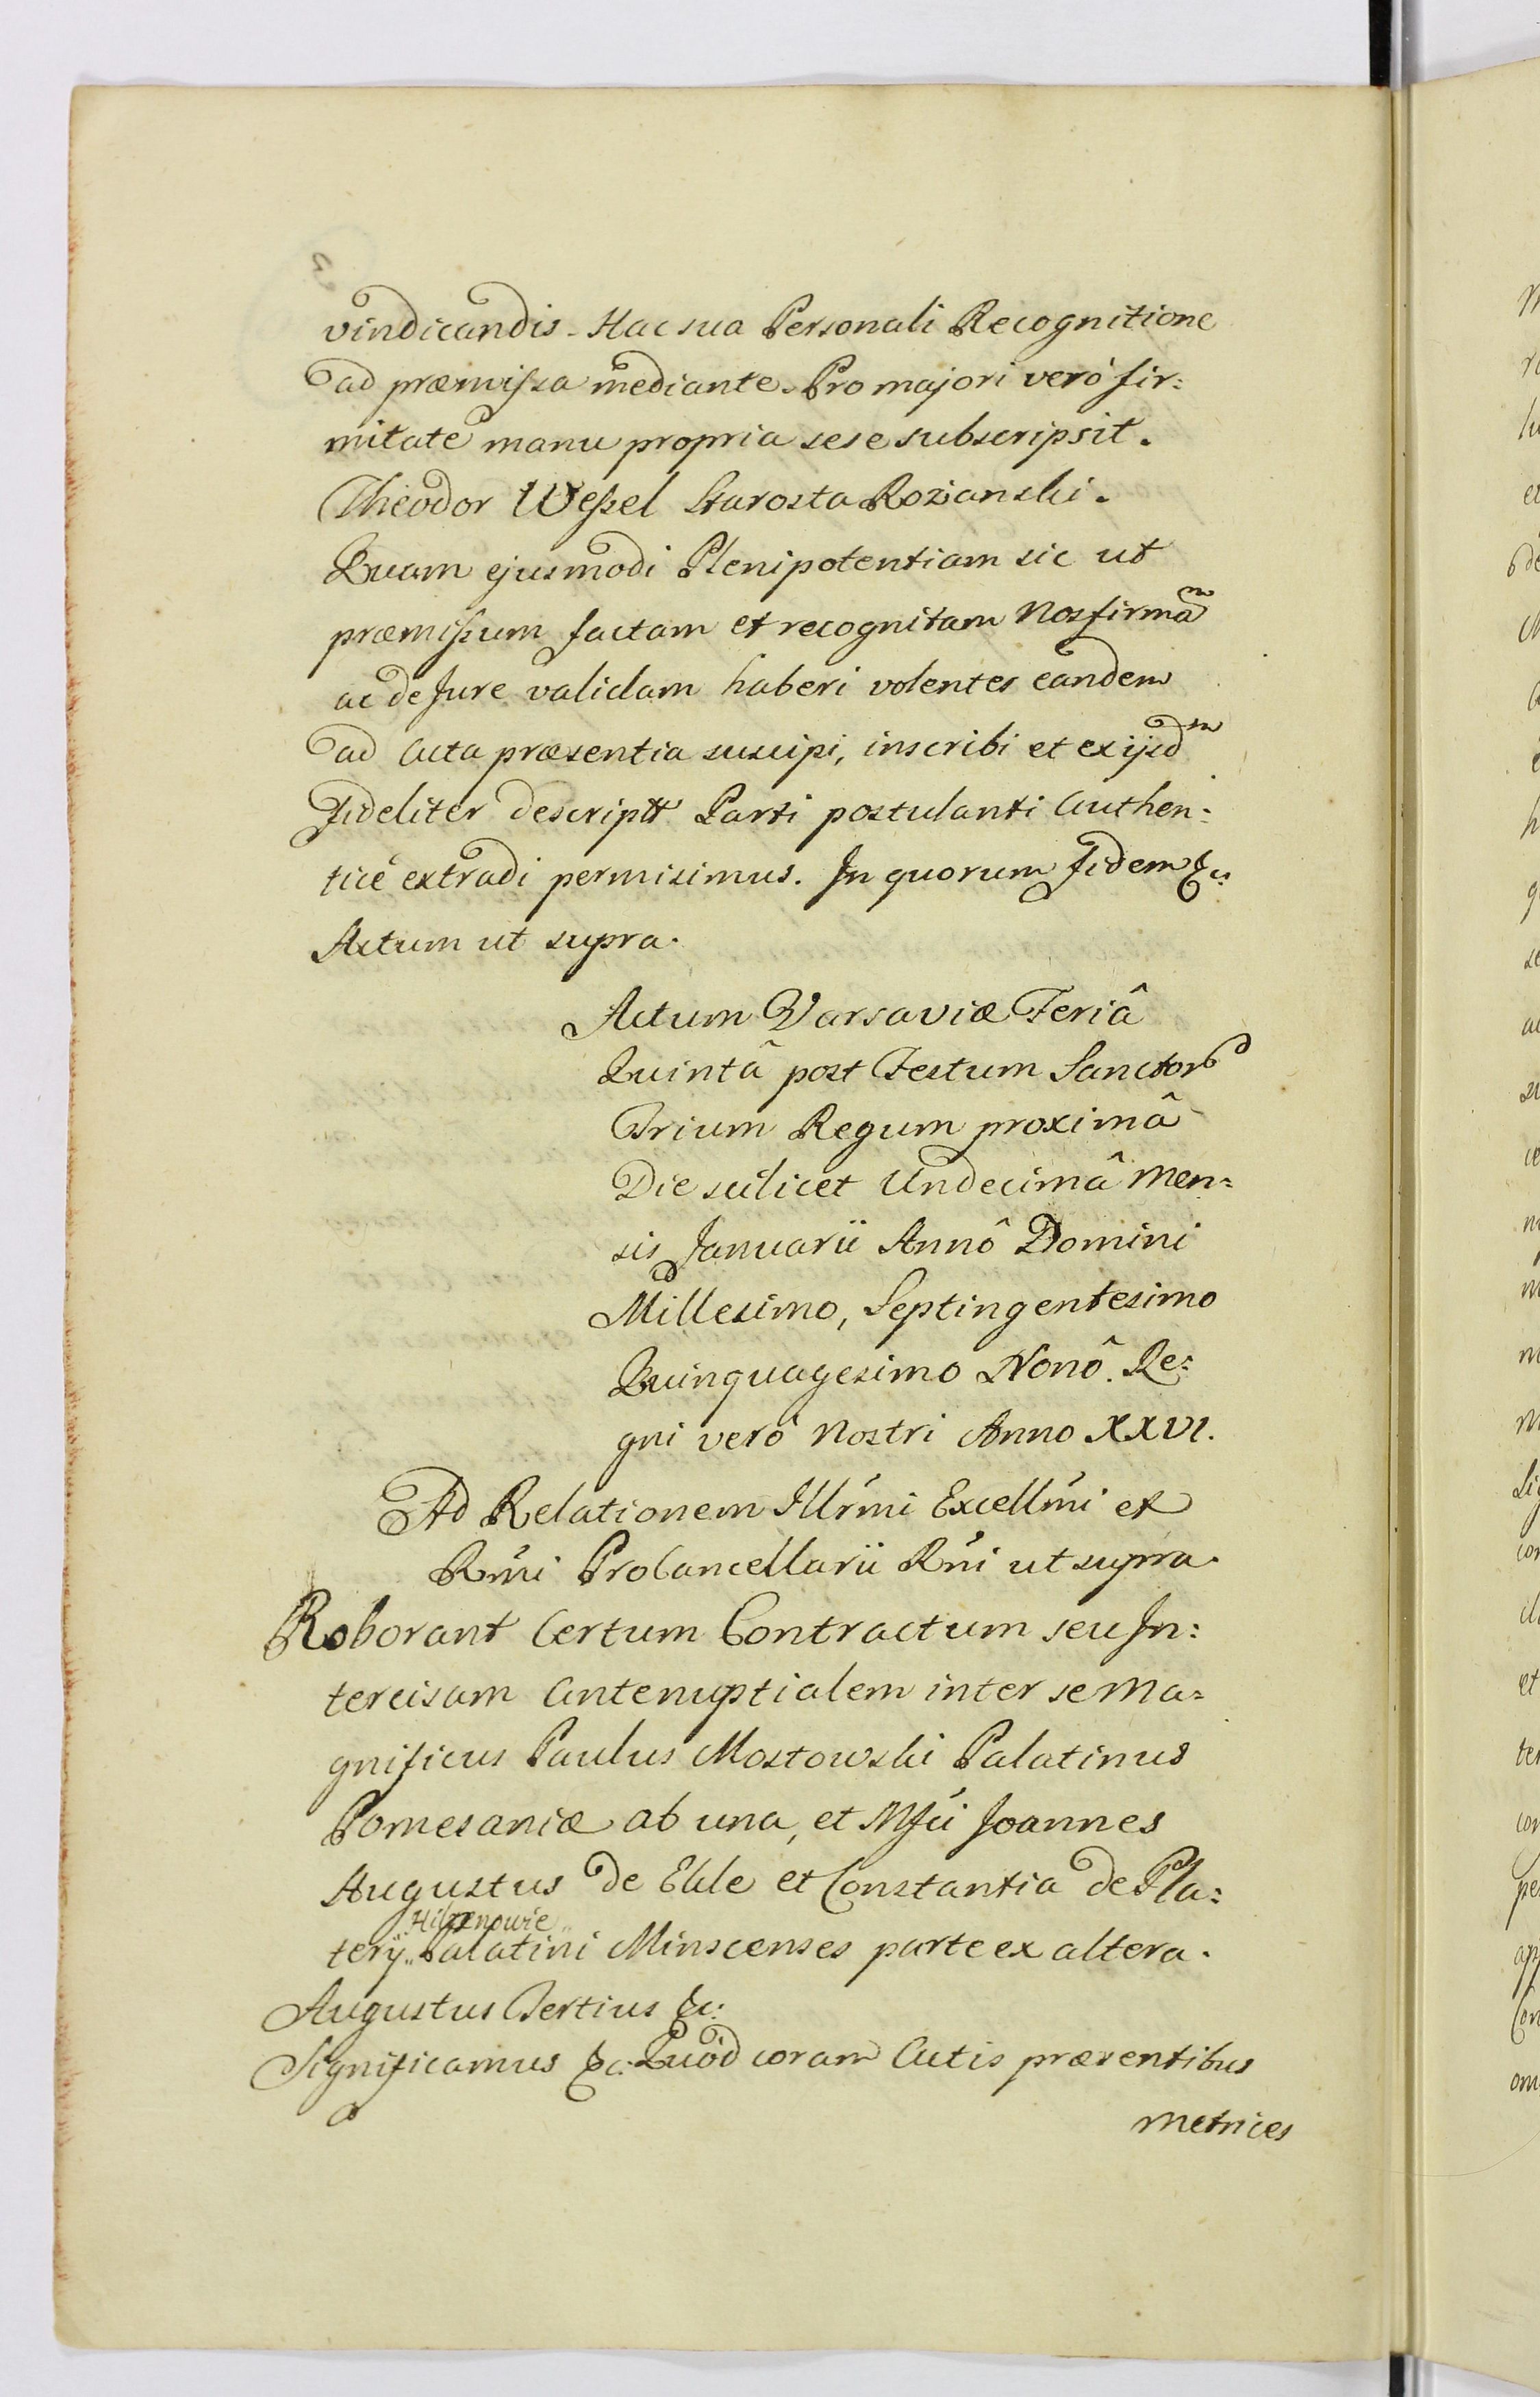 vindicandis. Hac sua Personali Recognitione
ad præmissa mediante. Pro majori verò fir:
mitate manu propria sese subscripsit.
Theodor Wessel Starosta Rozianski.
Quam ejusmodi Plenipotentiam sic ut
præmissum factam et recognitam Nos firmã
ac de Jure validam haberi volentes eandem
ad Acta præsentia suscipi, inscribi et ex ijsdm
Fideliter descriptt Parti postulanti Authen:
ticè extradi permisimus. In quorum Fidem &c:
Actum ut supra.
Actum Varsaviæ Feriâ
Quintâ post Festum Sanctor
Trium Regum proximâ
Die scilicet Undecimâ Men=
sis Januarii Annô Domini
Millesimo, Septingentesimo
Quinquagesimo Nonô. Re:
gni verò Nostri Anno XXVI.
Ad Relationem Illrmi Excellmi et
Rmi ProCancellarii Rni ut supra.
Roborant Certum Contractum seu In:
tercisam Antenuptialem inter se Ma=
gnificus Paulus Mostowski Palatinus
Pomesaniæ ab una, et Mfci Joannes
Augustus de Elsle et Constantia de Pla:
Hilzenowie
terÿ Palatini Minscenses parte ex altera.
Augustus Tertius &c:
Significamus &c: Quòd coram Actis præsentibus
Metrices